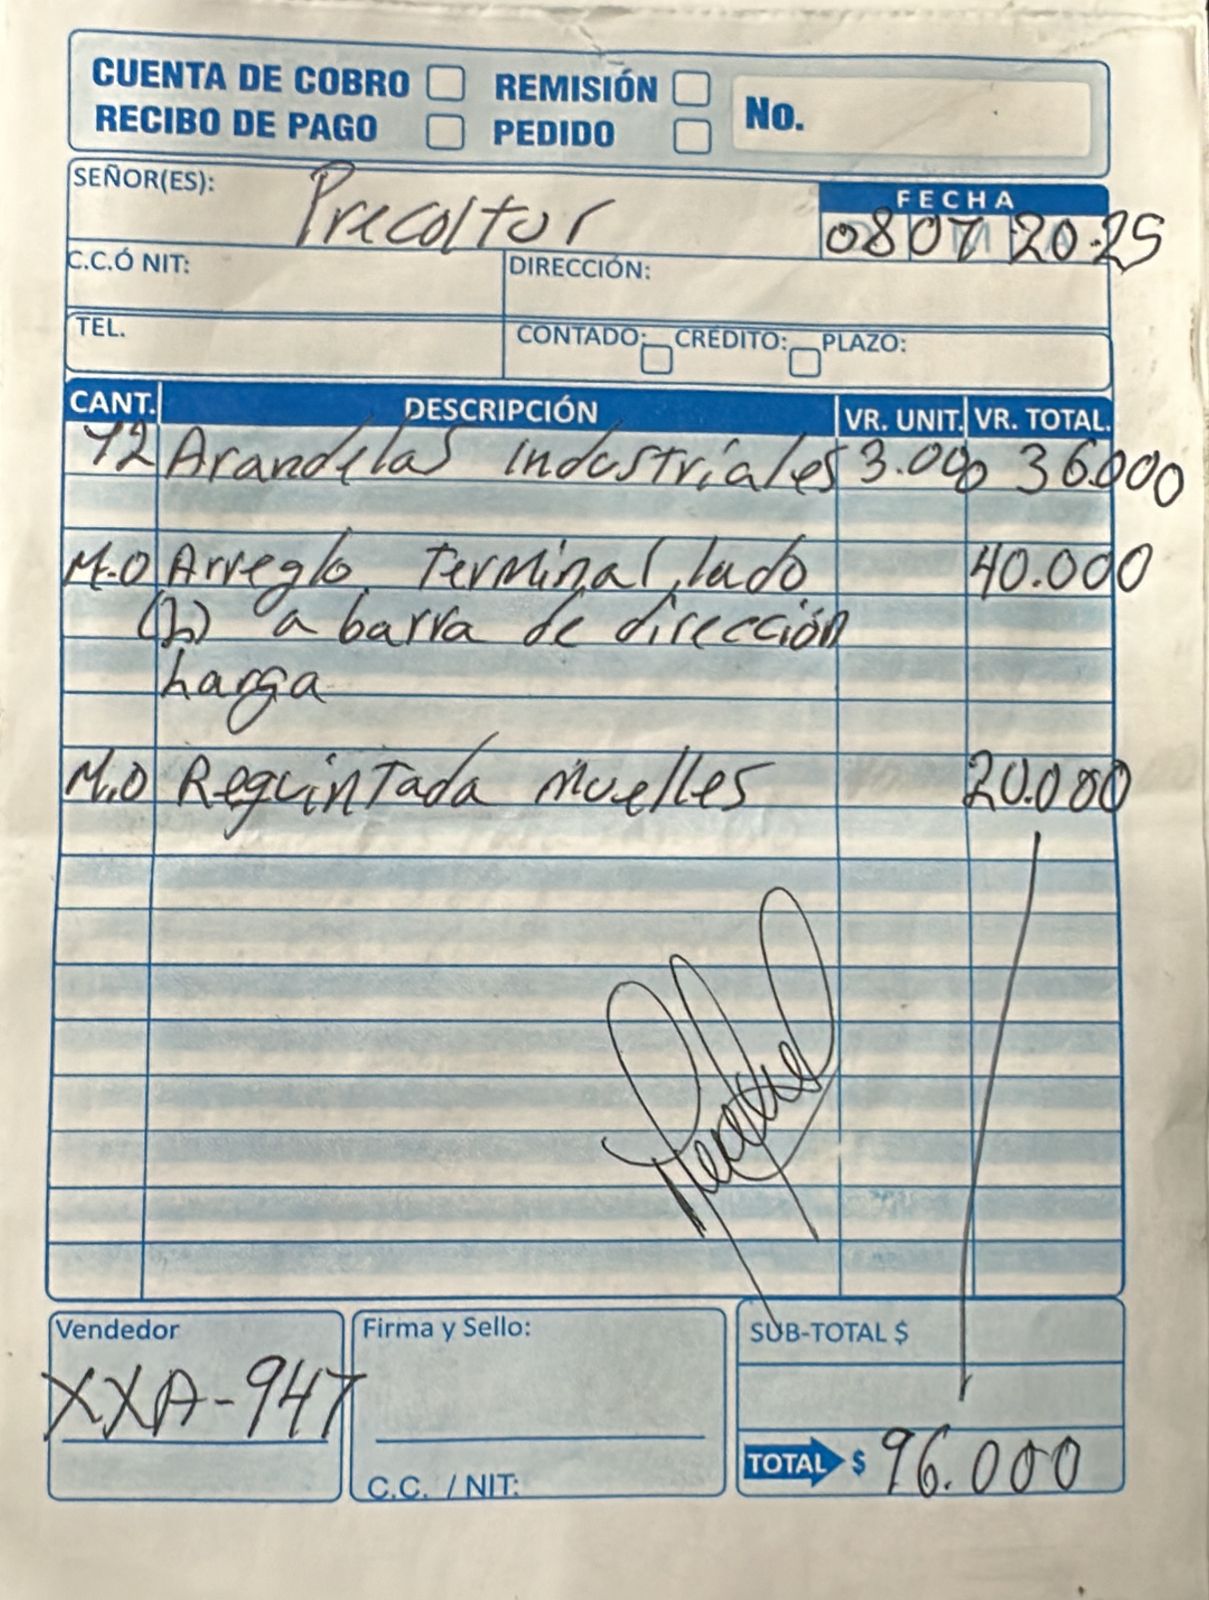 CUENTA DE COBRO REMISIÓN No.
RECIBO DE PAGO PEDIDO
SEÑOR(ES): Precoltur FECHA
08 07 2025
C.C.Ó NIT: DIRECCIÓN:
TEL. CONTADO: CREDITO: PLAZO:
CANT. DESCRIPCIÓN VR. UNIT. VR. TOTAL.
12 Arandelas industriales 3.000 36.000
M.O Arreglo Terminal lado 40.000
(L) a barra de dirección
Larga
M.O Requintada muelles 20.000
Vendedor Firma y Sello: SUB-TOTAL $
XXA-947
TOTAL $ 96.000
C.C. / NIT: